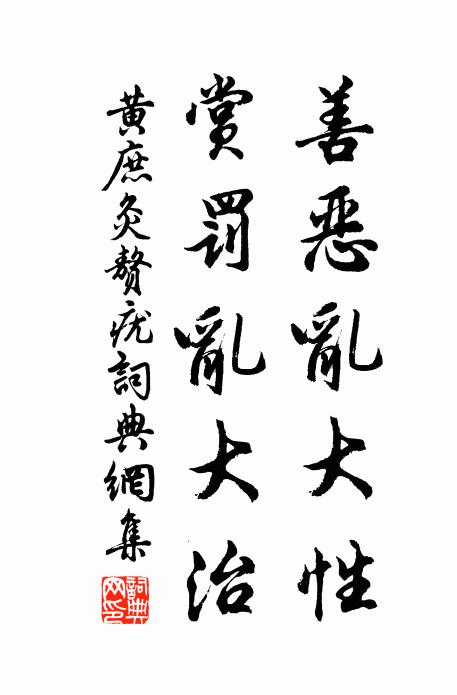 善惡亂大性
賞罰亂大治
黃庶灸贅疣詞典網集
詞典網印